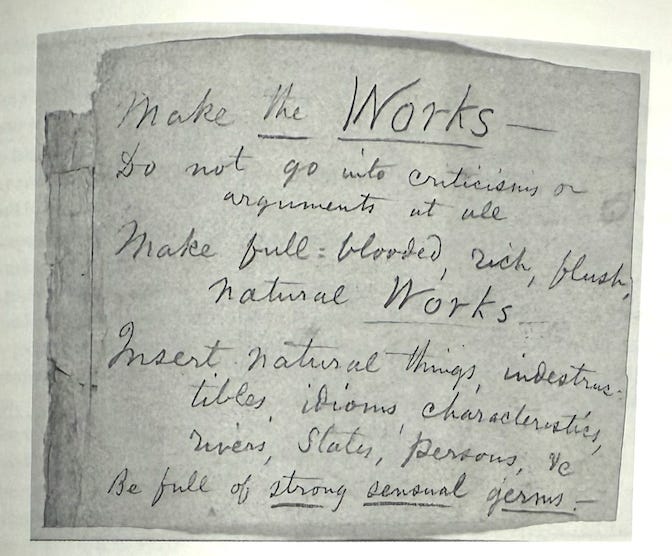 Make the Works —
Do not go into criticisms or
arguments at all
Make full-blooded, rich, flush,
natural Works
Insert natural things, indestruc-
tibles, idioms, characteristics,
rivers, States, persons, &c
Be full of strong sensual germs. —